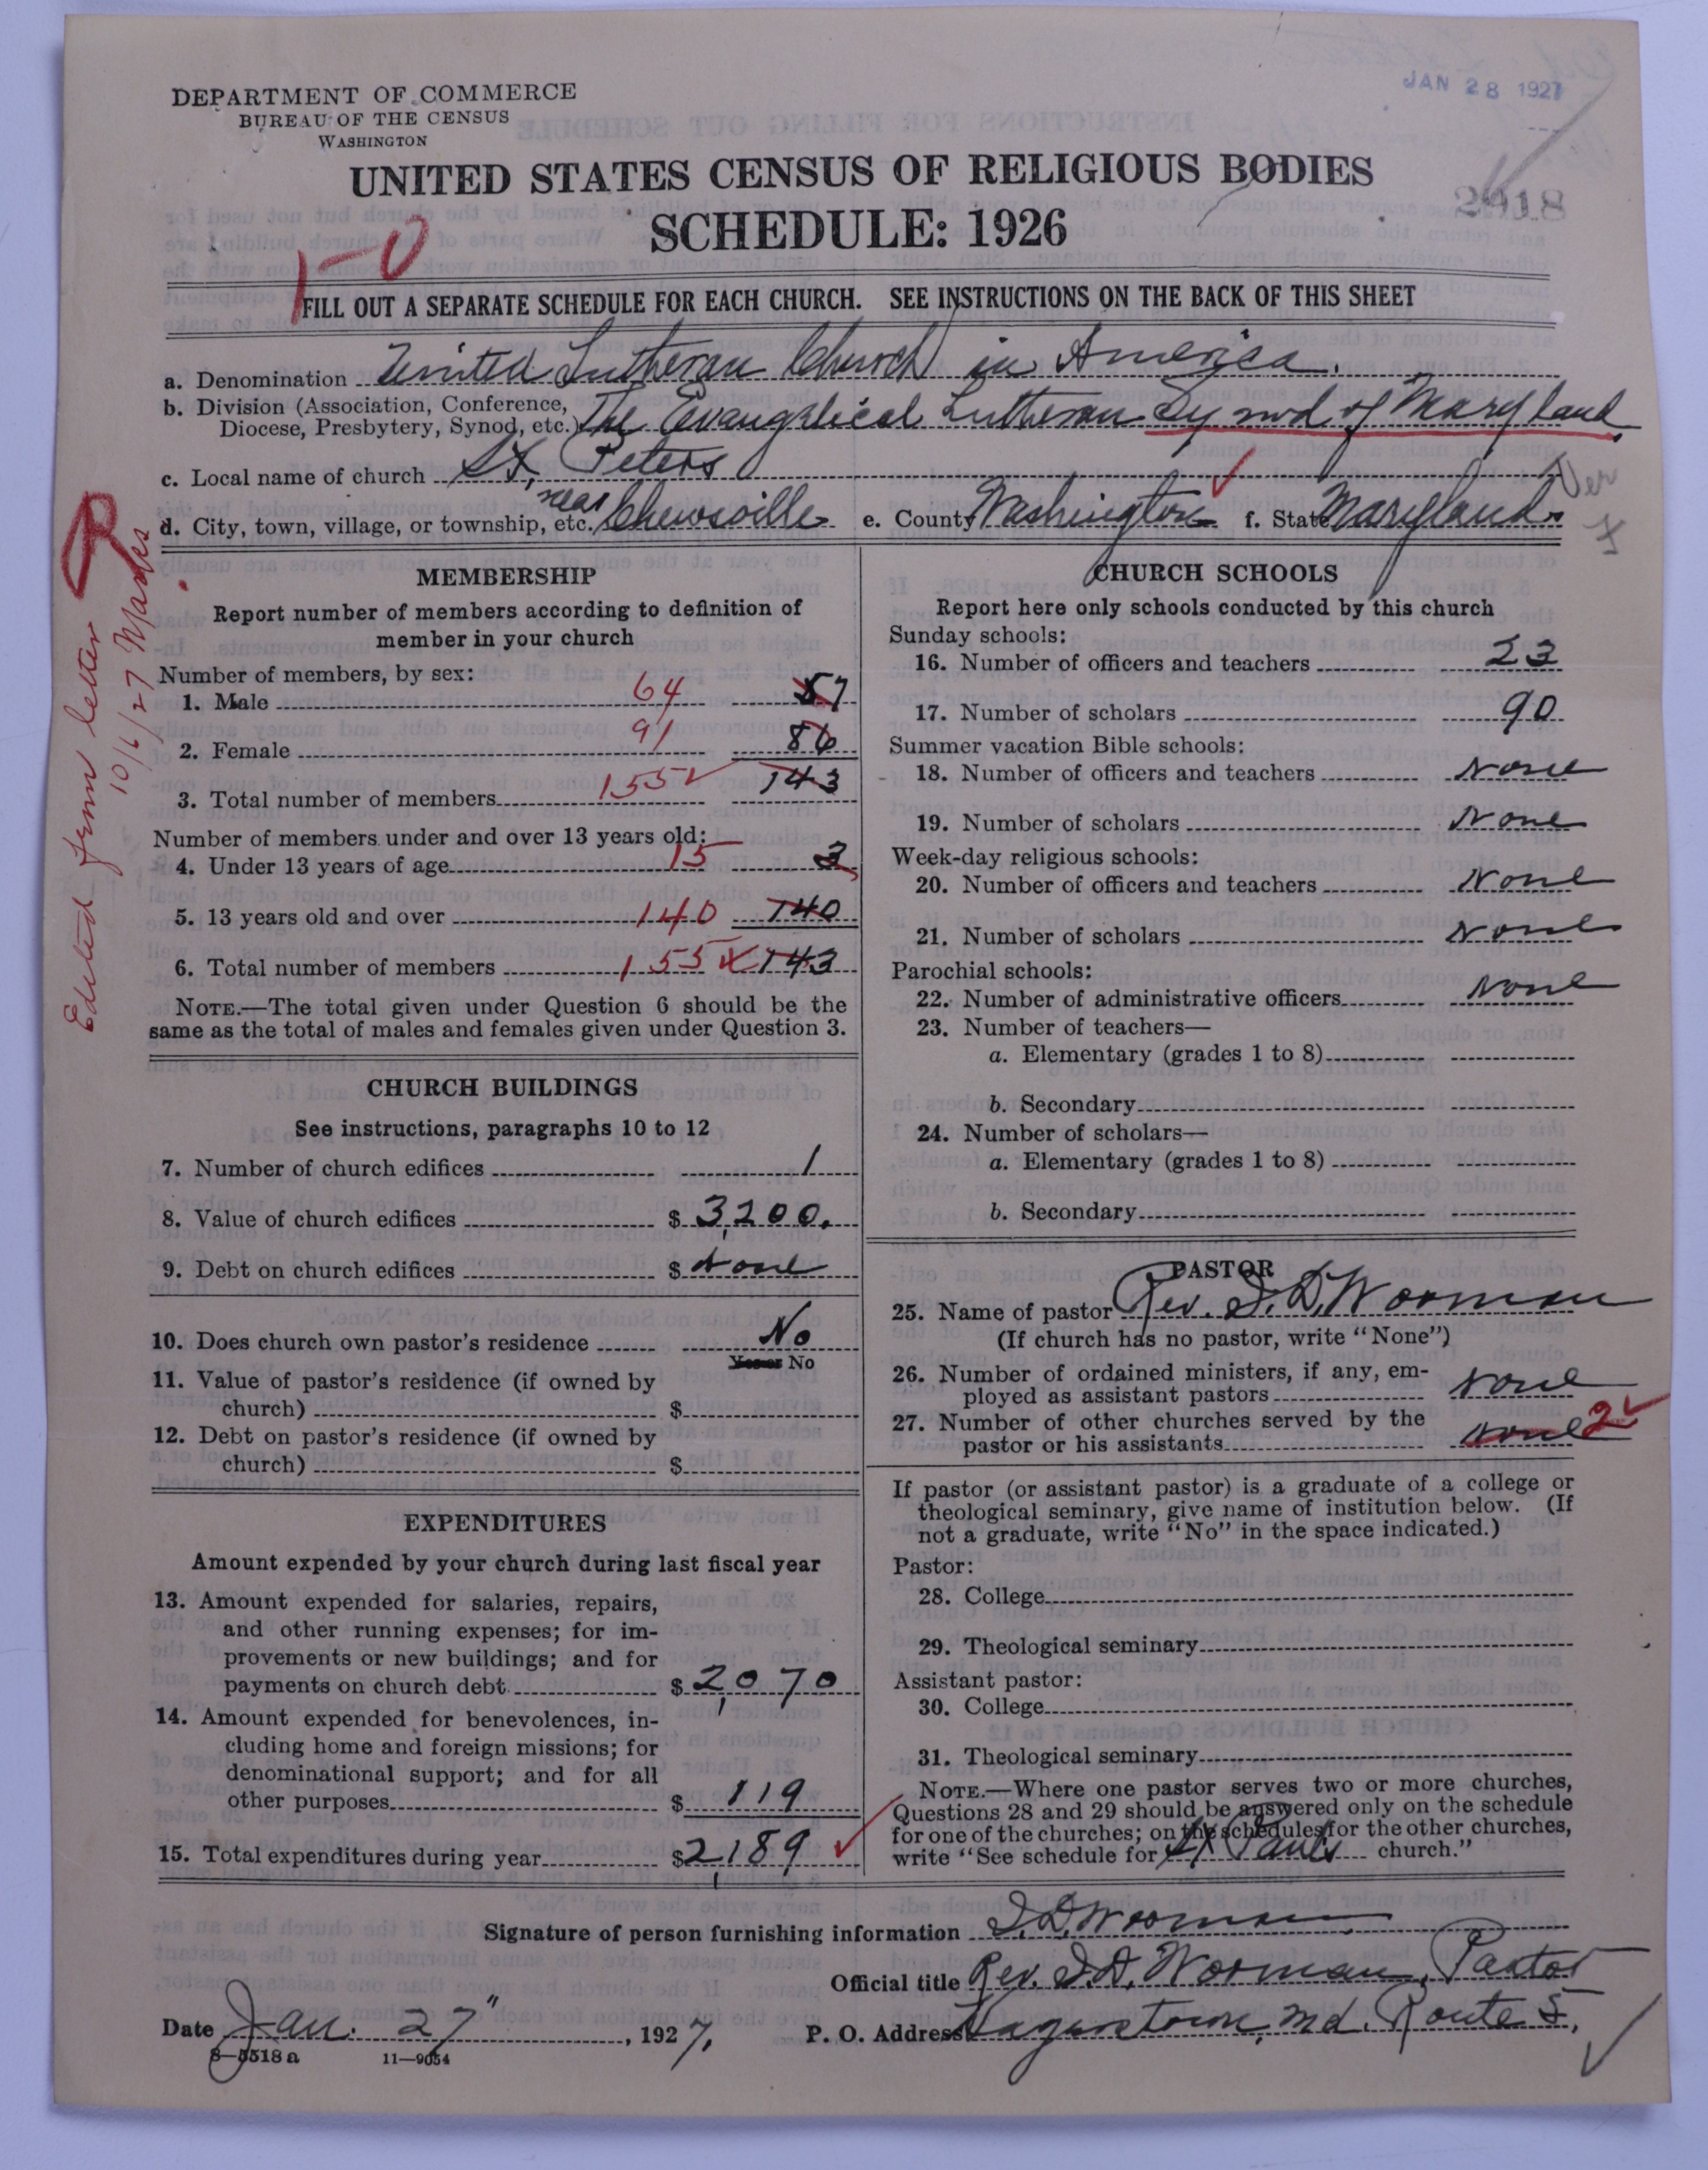 JAN 28 1927
DEPARTMENT OF COMMERCE
BUREAU OF THE CENSUS
WASHINGTON
UNITED STATES CENSUS OF RELIGIOUS BODIES
SCHEDULE: 1926
2918
1-0
FILL OUT A SEPARATE SCHEDULE FOR EACH CHURCH. SEE INSTRUCTIONS ON THE BACK OF THIS SHEET
a. Denomination United Lutheran Church in America.
b. Division (Association, Conference, Diocese, Presbytery, Synod, etc.) The Evangelical Lutheran Synod of Maryland
c. Local name of church St. Peters
d. City, town, village, or township, etc. near Chewsville e. County Washington f. State Maryland
Ver
Edited from letter
10/6/27
MEMBERSHIP
Report number of members according to definition of
member in your church
Number of members, by sex:
1. Male 64 57
2. Female 91 86
3. Total number of members 155 143
Number of members under and over 13 years old:
4. Under 13 years of age 15 3
5. 13 years old and over 140 140
6. Total number of members 155 143
NOTE.—The total given under Question 6 should be the
same as the total of males and females given under Question 3.
CHURCH BUILDINGS
See instructions, paragraphs 10 to 12
7. Number of church edifices 1
8. Value of church edifices $ 3,200.
9. Debt on church edifices $ None
10. Does church own pastor's residence No
Yes or No
11. Value of pastor's residence (if owned by
church) $
12. Debt on pastor's residence (if owned by
church) $
EXPENDITURES
Amount expended by your church during last fiscal year
13. Amount expended for salaries, repairs,
and other running expenses; for im-
provements or new buildings; and for
payments on church debt $ 2,070
14. Amount expended for benevolences, in-
cluding home and foreign missions; for
denominational support; and for all
other purposes $ 119
15. Total expenditures during year $ 2,189
CHURCH SCHOOLS
Report here only schools conducted by this church
Sunday schools:
16. Number of officers and teachers 23
17. Number of scholars 90
Summer vacation Bible schools:
18. Number of officers and teachers None
19. Number of scholars None
Week-day religious schools:
20. Number of officers and teachers None
21. Number of scholars None
Parochial schools:
22. Number of administrative officers None
23. Number of teachers—
a. Elementary (grades 1 to 8)
b. Secondary
24. Number of scholars—
a. Elementary (grades 1 to 8)
b. Secondary
PASTOR
25. Name of pastor Rev. S. D. Worman
(If church has no pastor, write "None")
26. Number of ordained ministers, if any, em-
ployed as assistant pastors None
27. Number of other churches served by the
pastor or his assistants None 2
If pastor (or assistant pastor) is a graduate of a college or
theological seminary, give name of institution below. (If
not a graduate, write "No" in the space indicated.)
Pastor:
28. College
29. Theological seminary
Assistant pastor:
30. College
31. Theological seminary
NOTE.—Where one pastor serves two or more churches,
Questions 28 and 29 should be answered only on the schedule
for one of the churches; on the schedules for the other churches,
write "See schedule for St Paul's church."
Signature of person furnishing information S. D. Worman
Official title Rev. S. D. Worman, Pastor
Date Jan. 27", 1927, P. O. Address Hagerstown, Md. Route 5,
8—5518 a 11—9054